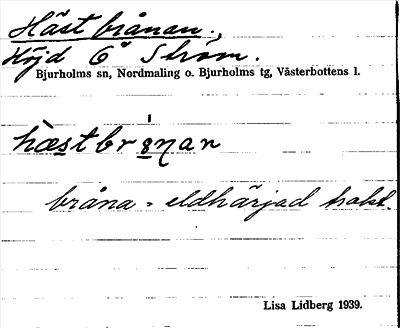 Hästbrånan.,
Höjd 6" Ström.
Bjurholms sn, Nordmaling o. Bjurholms tg, Västerbottens l.
hæstbrånan
bråna = eldhärjad trakt.
Lisa Lidberg 1939.